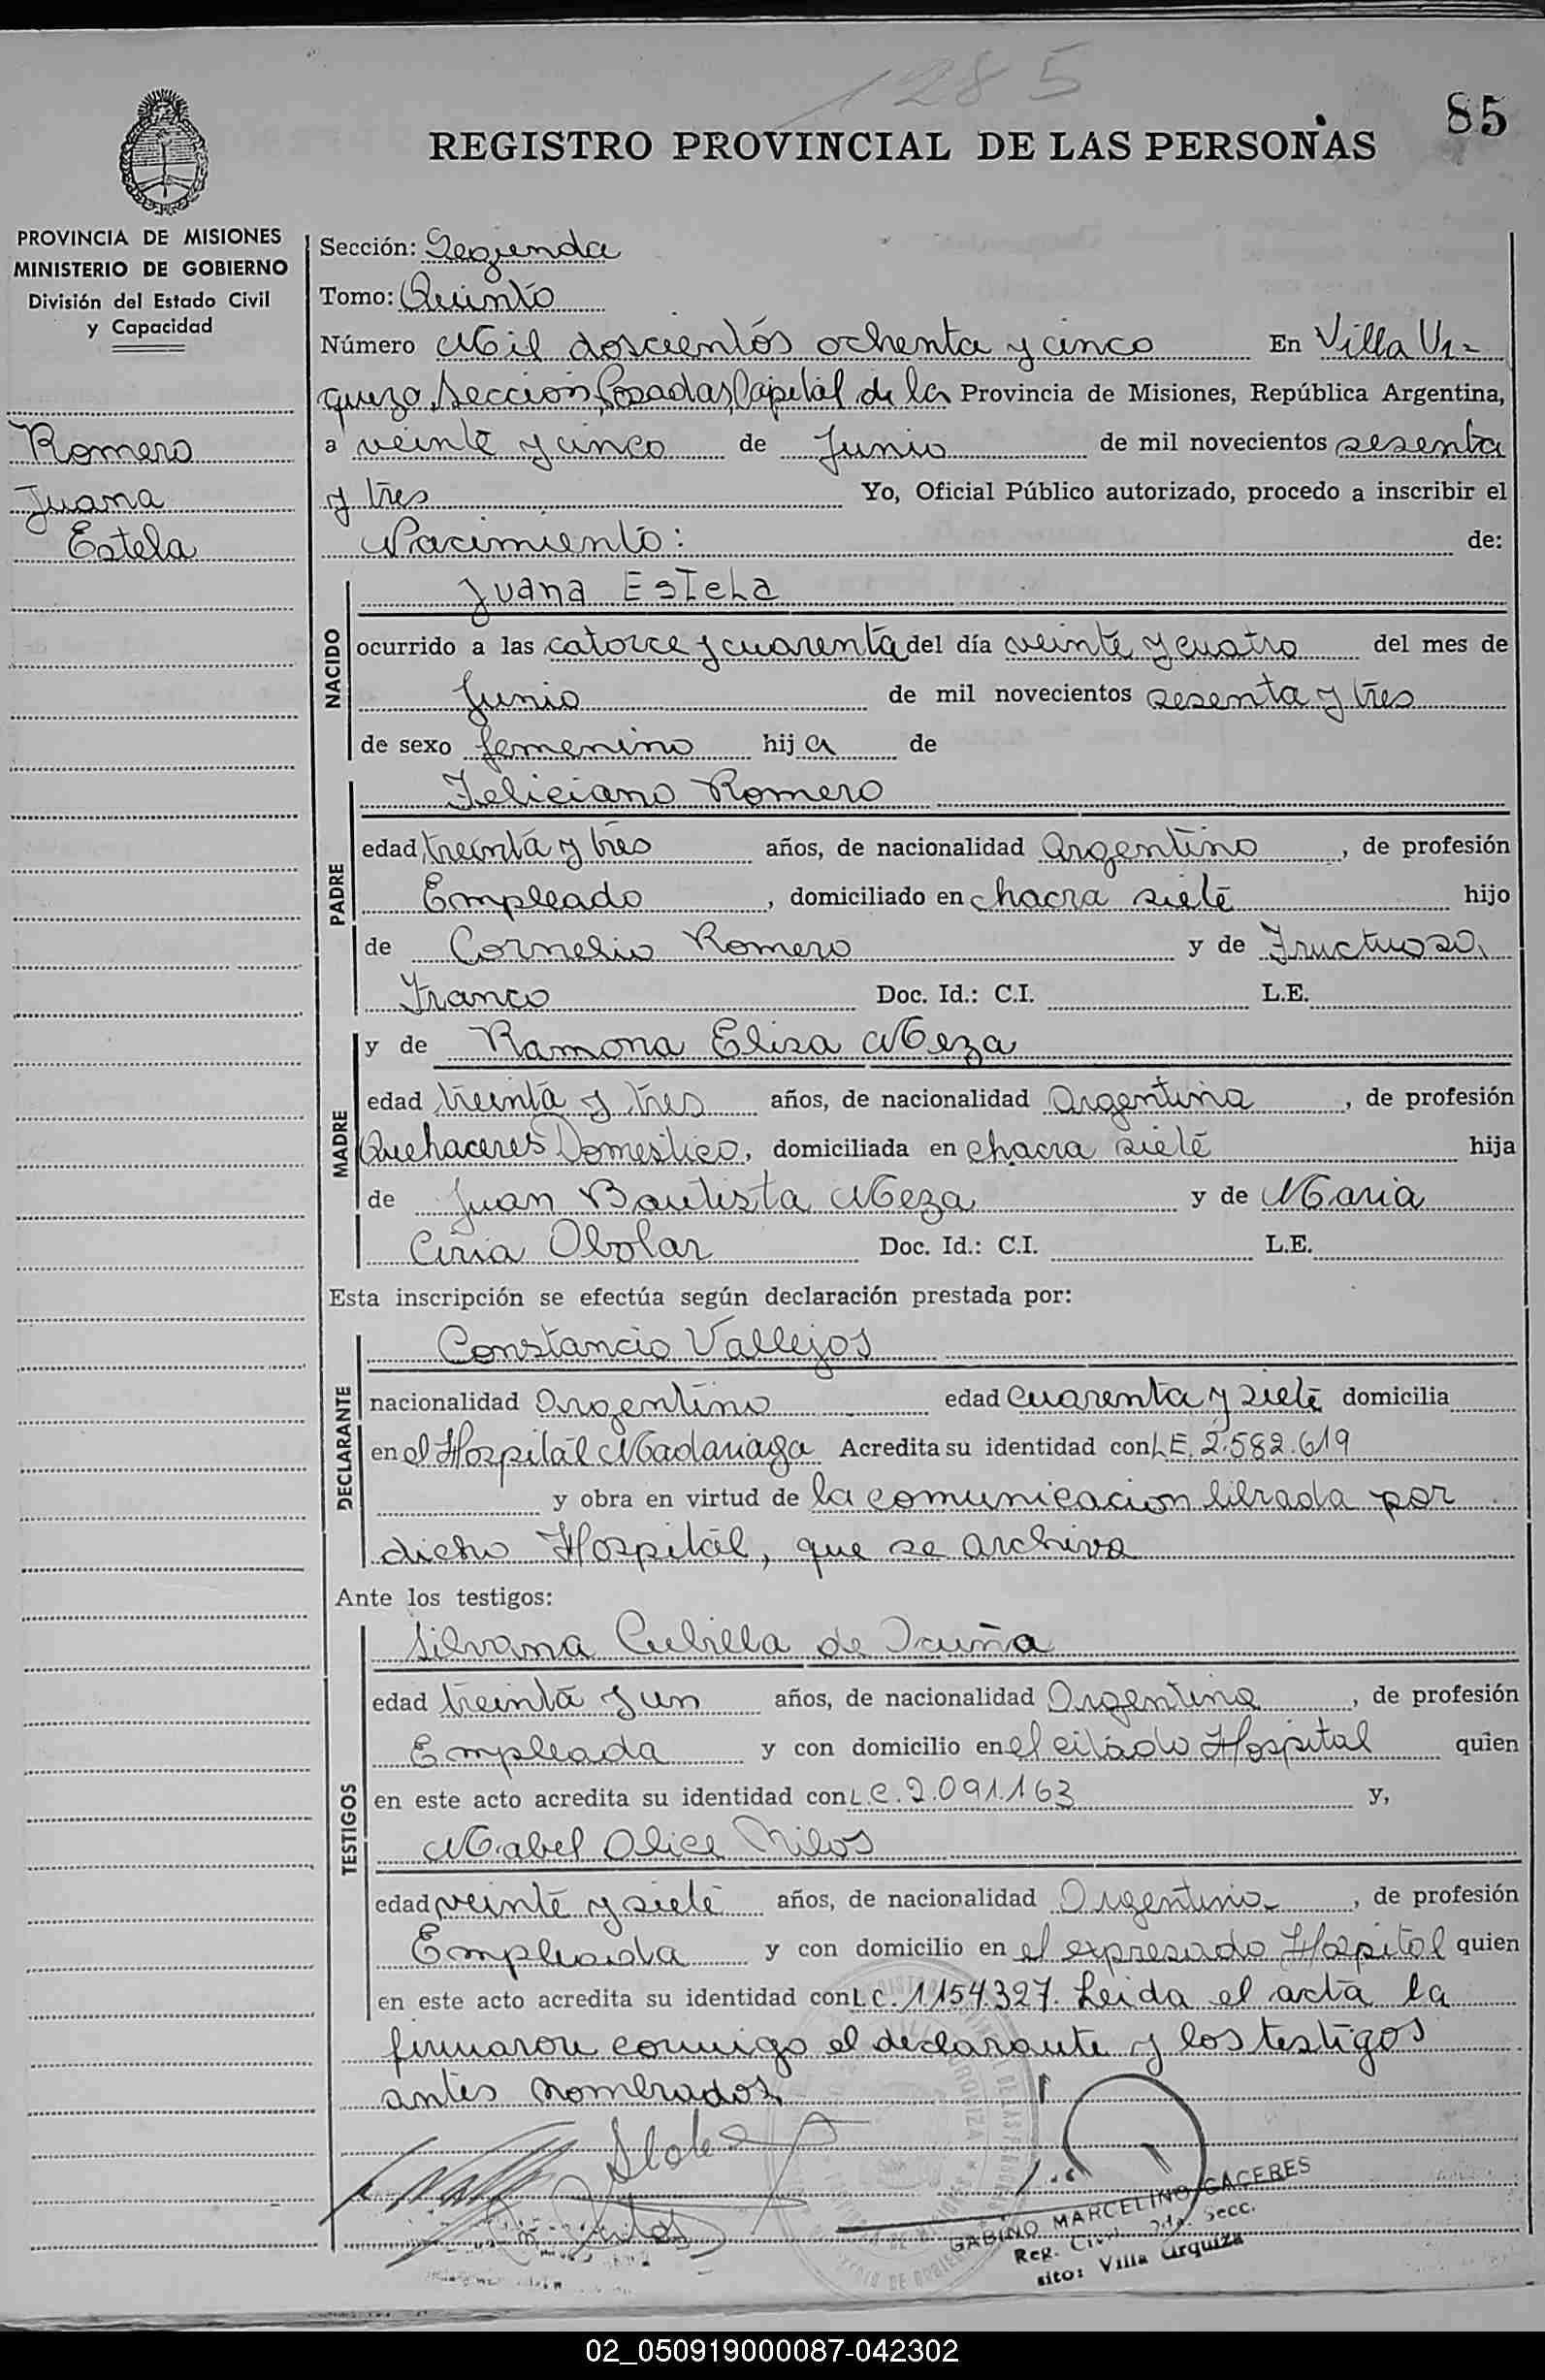 1285
85
REGISTRO PROVINCIAL DE LAS PERSONAS
PROVINCIA DE MISIONES
MINISTERIO DE GOBIERNO
División del Estado Civil
y Capacidad
Romero
Juana
Estela
Sección: Segunda
Tomo: Quinto
Número Mil doscientos ochenta y cinco En Villa Ur-
quiza, Sección Posadas, Capital de la Provincia de Misiones, República Argentina,
a veinte y cinco de Junio de mil novecientos sesenta
y tres Yo, Oficial Público autorizado, procedo a inscribir el
Nacimiento: de:
NACIDO
Juana Estela
ocurrido a las catorce y cuarenta del día veinte y cuatro del mes de
Junio de mil novecientos sesenta y tres
de sexo femenino hija de
PADRE
Feliciano Romero
edad treinta y tres años, de nacionalidad Argentino, de profesión
Empleado, domiciliado en chacra siete hijo
de Cornelio Romero y de Fructuosa
Franco Doc. Id.: C.I. L.E.
MADRE
y de Ramona Elisa Meza
edad treinta y tres años, de nacionalidad Argentina, de profesión
Quehaceres Domestico, domiciliada en chacra siete hija
de Juan Bautista Meza y de Maria
Ciria Obolar Doc. Id.: C.I. L.E.
Esta inscripción se efectúa según declaración prestada por:
DECLARANTE
Constancio Vallejos
nacionalidad Argentino edad cuarenta y siete domicilia
en el Hospital Madariaga Acredita su identidad con L.E. 2.582.619
y obra en virtud de la comunicacion librada por
dicho Hospital, que se archiva
Ante los testigos:
TESTIGOS
Silvana Cubilla de Acuña
edad treinta y un años, de nacionalidad Argentina, de profesión
Empleada y con domicilio en el citado Hospital quien
en este acto acredita su identidad con L.C. 2.091.163 y,
Mabel Alice
edad veinte y siete años, de nacionalidad Argentina, de profesión
Empleada y con domicilio en el expresado Hospital quien
en este acto acredita su identidad con L.C. 1154.327. Leida el acta la
firmaron conmigo el declarante y los testigos
antes nombrados.
GABINO MARCELINO CACERES
Reg. Civil 2da. Secc.
sito: Villa Urquiza
02_050919000087-042302